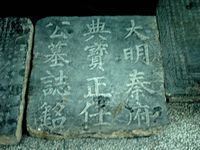 大明秦府
典寶正任
公墓誌銘